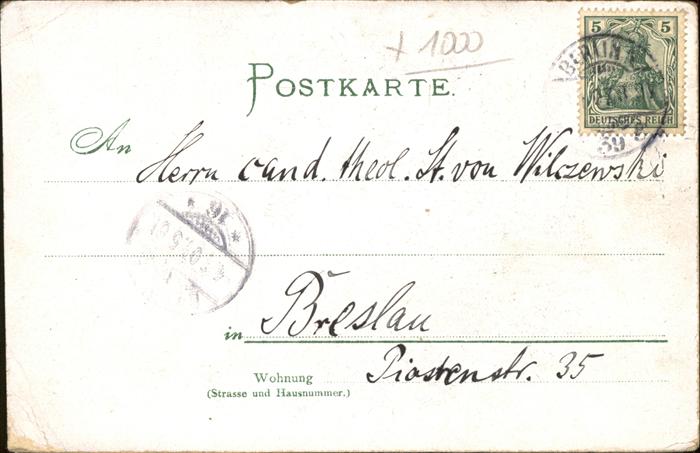 + 1000
5 5
DEUTSCHES REICH
BERLIN
39
POSTKARTE.
An Herrn cand. theol. St. von Wilczewski
in Breslau
Piastenstr. 35
Wohnung
(Strasse und Hausnummer.)